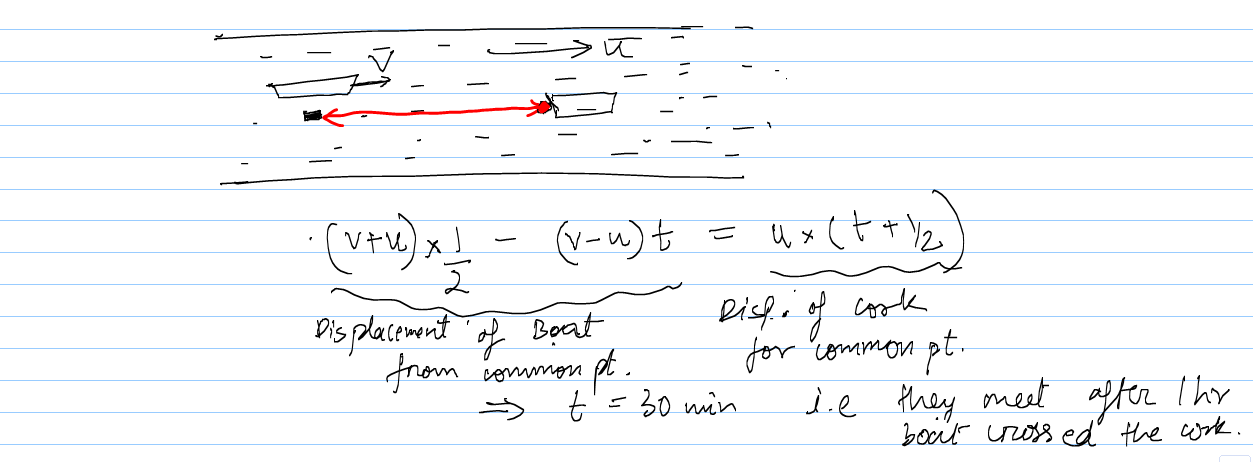 v̅ u̅
(v+u) × 1/2 - (v-u) t = u × (t + 1/2)
Displacement of Boat Disp. of cork
from common pt. for common pt.
⇒ t = 30 min i.e they meet after 1 hr
boat crossed the cork.